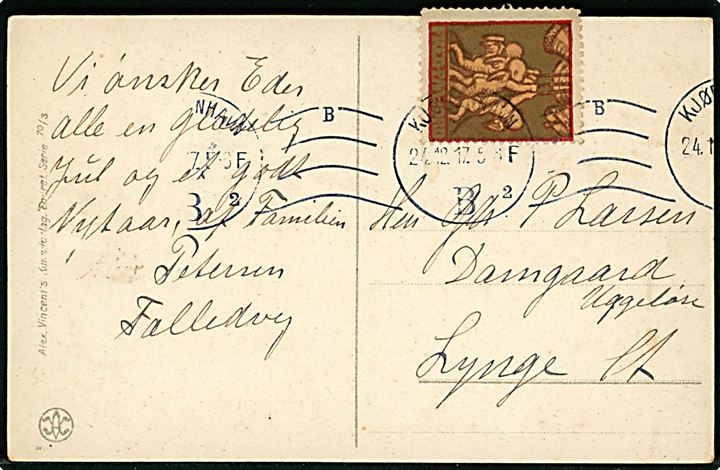 Vi ønsker Eder
alle en glædelig
Jul og et godt
Nytaar, af Familien
Petersen
Falledvej
Alex. Vincent's Kunstforlag. Eneret Serie 70/3
NHAVN
7
F
B
2
B
KJØBENHAVN
24.12.17. 5
F
B
2
B
KJØB
24.1
Herr Gdr P Larsen
Damgaard
Uggeløse
Lynge St